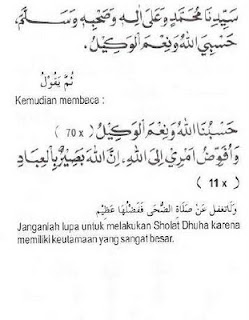 سَيِّدِنَا مُحَمَّدٍ وَعَلَى اٰلِهِ وَصَحْبِهِ وَسَلَّمَ،
حَسْبِيَ اللهُ وَنِعْمَ الْوَكِيْلُ.
ثُمَّ يَقُوْلُ
Kemudian membaca :
حَسْبُنَا اللهُ وَنِعْمَ الْوَكِيْلُ ( 70 x )
وَاُفَوِّضُ اَمْرِيْ اِلَى اللهِ، اِنَّ اللهَ بَصِيْرٌ بِالْعِبَادِ
( 11 x )
وَلَاتَغْفُلْ عَنْ صَلَاةِ الضُّحَى فَفَضْلُهَا عَظِيْمٌ
Janganlah lupa untuk melakukan Sholat Dhuha karena
memiliki keutamaan yang sangat besar.